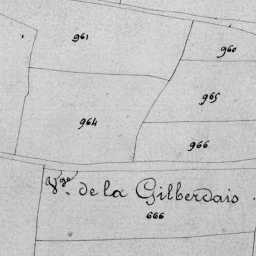 961
960
965
964
966
Vge. de la Gilberdais.
666